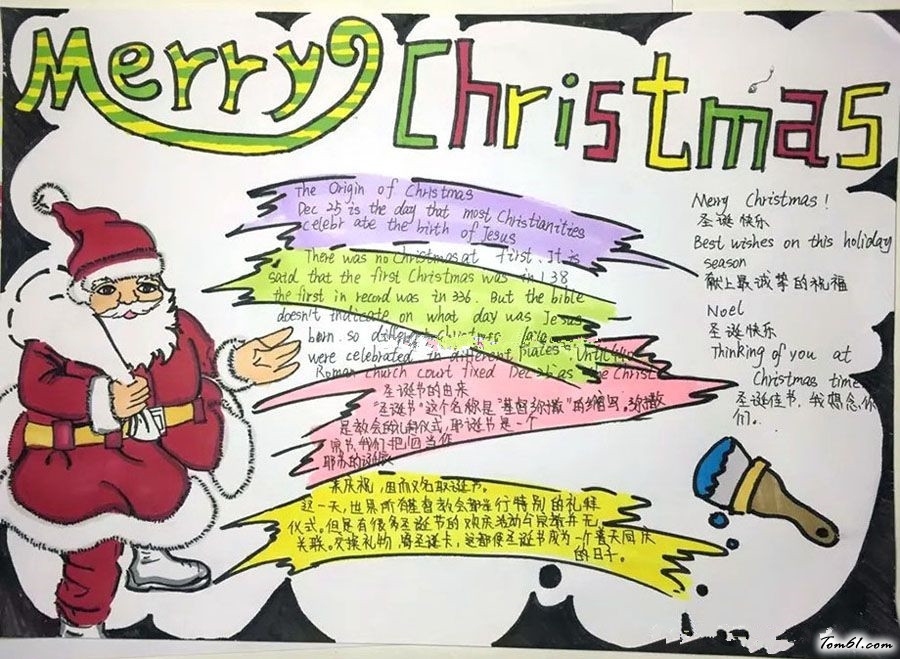 Merry Christmas
The Origin of Christmas
Dec 25 is the day that most Christianities
celebr ate the birth of Jesus
There was no Christmas at first. It is
said that the first Christmas was in 138
the first in record was in 336. But the bible
doesn't indicate on what day was Jesus
born. so
were celebrated in different plates Until the
Roman church court fixed Dec 25 as the Christ
圣诞节的由来
"圣诞节"这个名称是"基督弥撒"的缩写。弥撒
是教会的礼拜仪式,耶诞节是一个
宗教节,我们把它当作
耶苏的诞辰
来庆祝,因而又名耶诞节。
这一天,世界所有基督教会都举行特别的礼拜
仪式。但是有很多圣诞节的欢庆活动与宗教并无
关联。交换礼物,寄圣诞卡,这都使圣诞节成为一个普天同庆
的日子。
Merry Christmas!
圣诞快乐
Best wishes on this holiday
season
献上最诚挚的祝福
Noel
圣诞快乐
Thinking of you at
Christmas time
圣诞佳节,我想念你
们。
Tom61.com